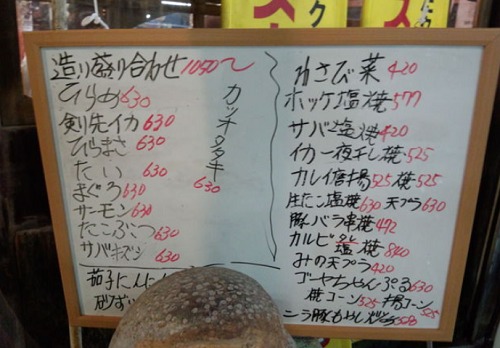 造り盛り合わせ 1050〜
ひらめ 630
剣先イカ 630
ひらまさ 630
たい 630
まぐろ 630
サーモン 630
たこぶつ 630
サバキズシ 630
カツオタタキ 630
茄子にんに
砂ず
わさび菜 420
ホッケ塩焼 577
サバ塩焼 420
イカ一夜干し焼 525
カレイ唐揚 525 焼 525
生たこ塩焼 630 天プラ 630
豚バラ串焼 472
カルビタレ塩焼 840
みの天プラ 420
ゴーヤちゃんぷる 630
焼コーン 525 揚コーン 525
ニラ豚もやし
ス
ク
ス